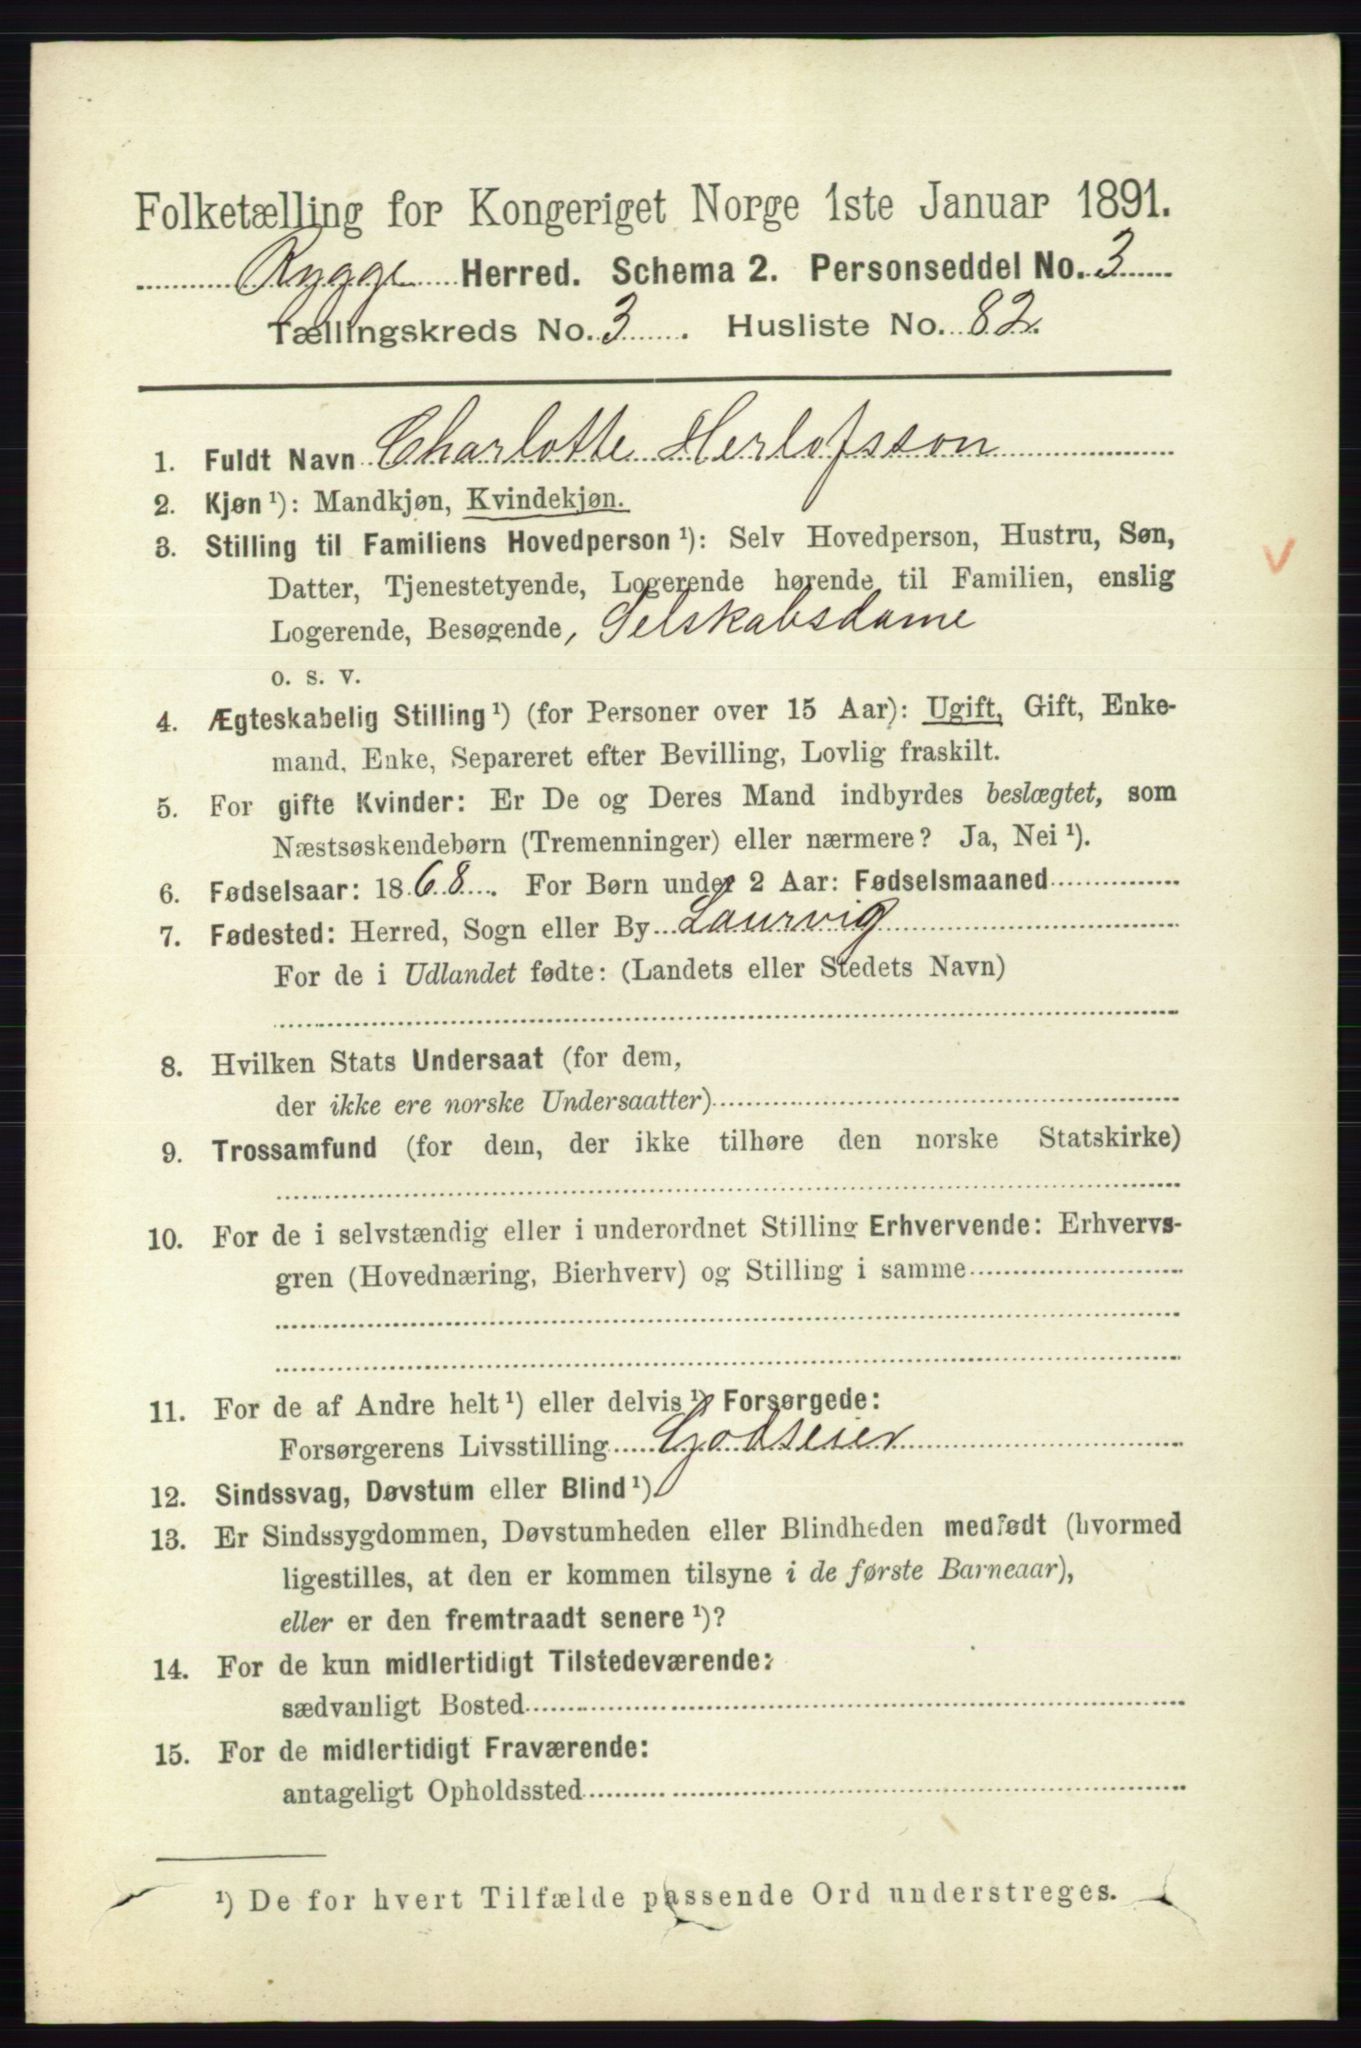 Folketælling for Kongeriget Norge 1ste Januar 1891.
Rygge Herred. Schema 2. Personseddel No. 3
Tællingskreds No. 3. Husliste No. 82.
1. Fuldt Navn Charlotte Herlofsson
2. Kjøn ¹): Mandkjøn, Kvindekjøn.
3. Stilling til Familiens Hovedperson ¹): Selv Hovedperson, Hustru, Søn,
Datter, Tjenestetyende, Logerende hørende til Familien, enslig
Logerende, Besøgende, Selskabsdame
o. s. v.
4. Ægteskabelig Stilling ¹) (for Personer over 15 Aar): Ugift, Gift, Enke-
mand, Enke, Separeret efter Bevilling, Lovlig fraskilt.
5. For gifte Kvinder: Er De og Deres Mand indbyrdes beslægtet, som
Næstsøskendebørn (Tremenninger) eller nærmere? Ja, Nei ¹).
6. Fødselsaar: 1868. For Børn under 2 Aar: Fødselsmaaned
7. Fødested: Herred, Sogn eller By Laurvig
For de i Udlandet fødte: (Landets eller Stedets Navn)
8. Hvilken Stats Undersaat (for dem,
der ikke ere norske Undersaatter)
9. Trossamfund (for dem, der ikke tilhøre den norske Statskirke)
10. For de i selvstændig eller i underordnet Stilling Erhvervende: Erhvervs-
gren (Hovednæring, Bierhverv) og Stilling i samme
11. For de af Andre helt ¹) eller delvis ¹) Forsørgede:
Forsørgerens Livsstilling Godseier
12. Sindssvag, Døvstum eller Blind ¹)
13. Er Sindssygdommen, Døvstumheden eller Blindheden medfødt (hvormed
ligestilles, at den er kommen tilsyne i de første Barneaar),
eller er den fremtraadt senere ¹)?
14. For de kun midlertidigt Tilstedeværende:
sædvanligt Bosted
15. For de midlertidigt Fraværende:
antageligt Opholdssted
¹) De for hvert Tilfælde passende Ord understreges.